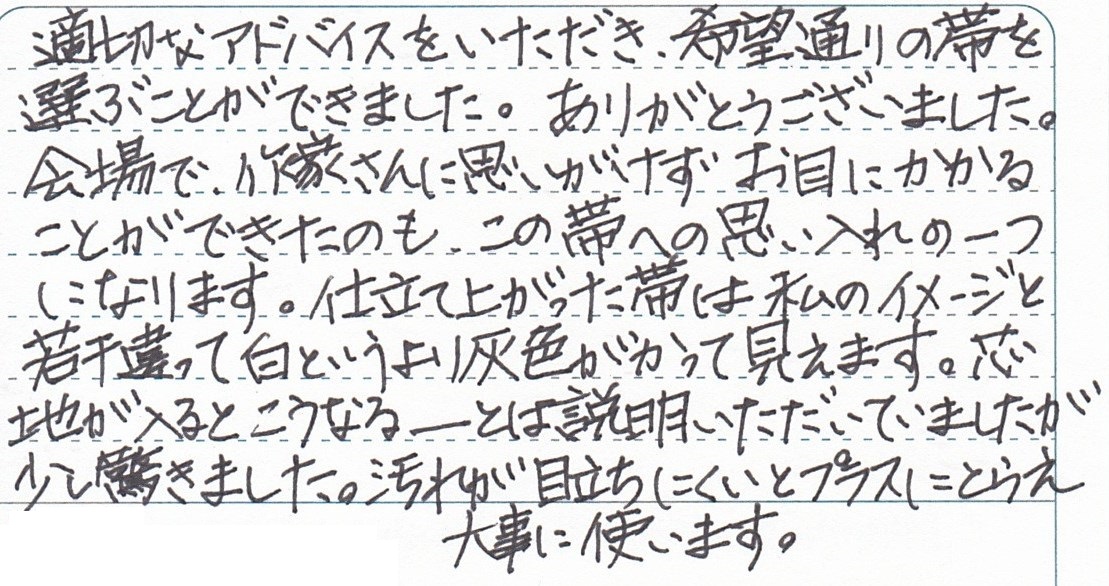 適切なアドバイスをいただき、希望通りの帯を
選ぶことができました。ありがとうございました。
会場で、作家さんに思いがけずお目にかかる
ことができたのも、この帯への思い入れの一つ
になります。仕立て上がった帯は私のイメージと
若干違って白というより灰色がかって見えます。芯
地が入るとこうなる―とは説明いただいていましたが
少し驚きました。汚れが目立ちにくいとプラスにとらえ
大事に使います。